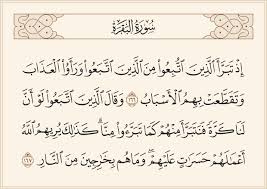 سُورَةُ البَقَرَةِ
إِذْ تَبَرَّأَ ٱلَّذِينَ ٱتُّبِعُوا۟ مِنَ ٱلَّذِينَ ٱتَّبَعُوا۟ وَرَأَوُا۟ ٱلْعَذَابَ
وَتَقَطَّعَتْ بِهِمُ ٱلْأَسْبَابُ ١٦٦ وَقَالَ ٱلَّذِينَ ٱتَّبَعُوا۟ لَوْ أَنَّ
لَنَا كَرَّةً فَنَتَبَرَّأَ مِنْهُمْ كَمَا تَبَرَّءُوا۟ مِنَّا ۗ كَذَٰلِكَ يُرِيهِمُ ٱللَّهُ
أَعْمَٰلَهُمْ حَسَرَٰتٍ عَلَيْهِمْ ۖ وَمَا هُم بِخَٰرِجِينَ مِنَ ٱلنَّارِ ١٦٧